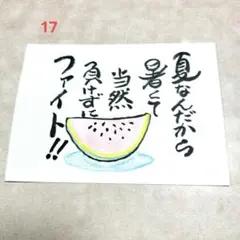 17
夏なんだから
暑くて
当然
負けずに
ファイト!!